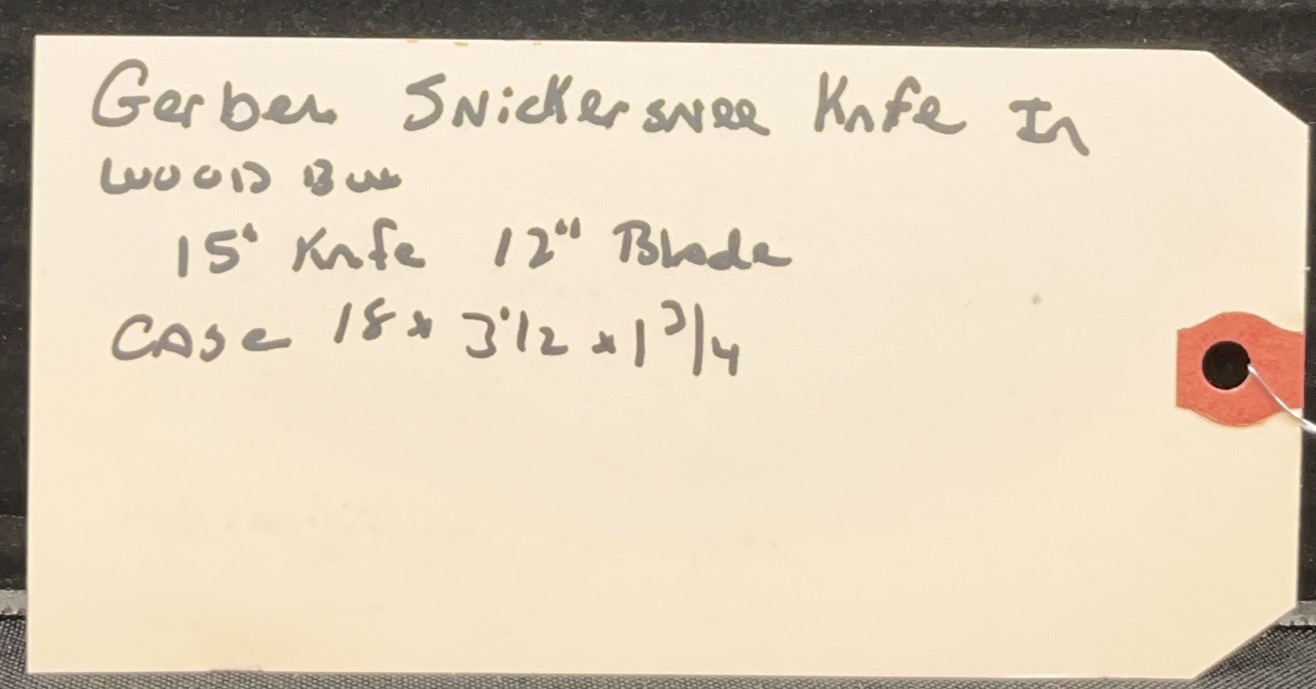 Gerber Snickersnee Knfe In
WOOD Box
15" Knfe 12" Blade
CASE 18 x 3 1/2 x 1 3/4